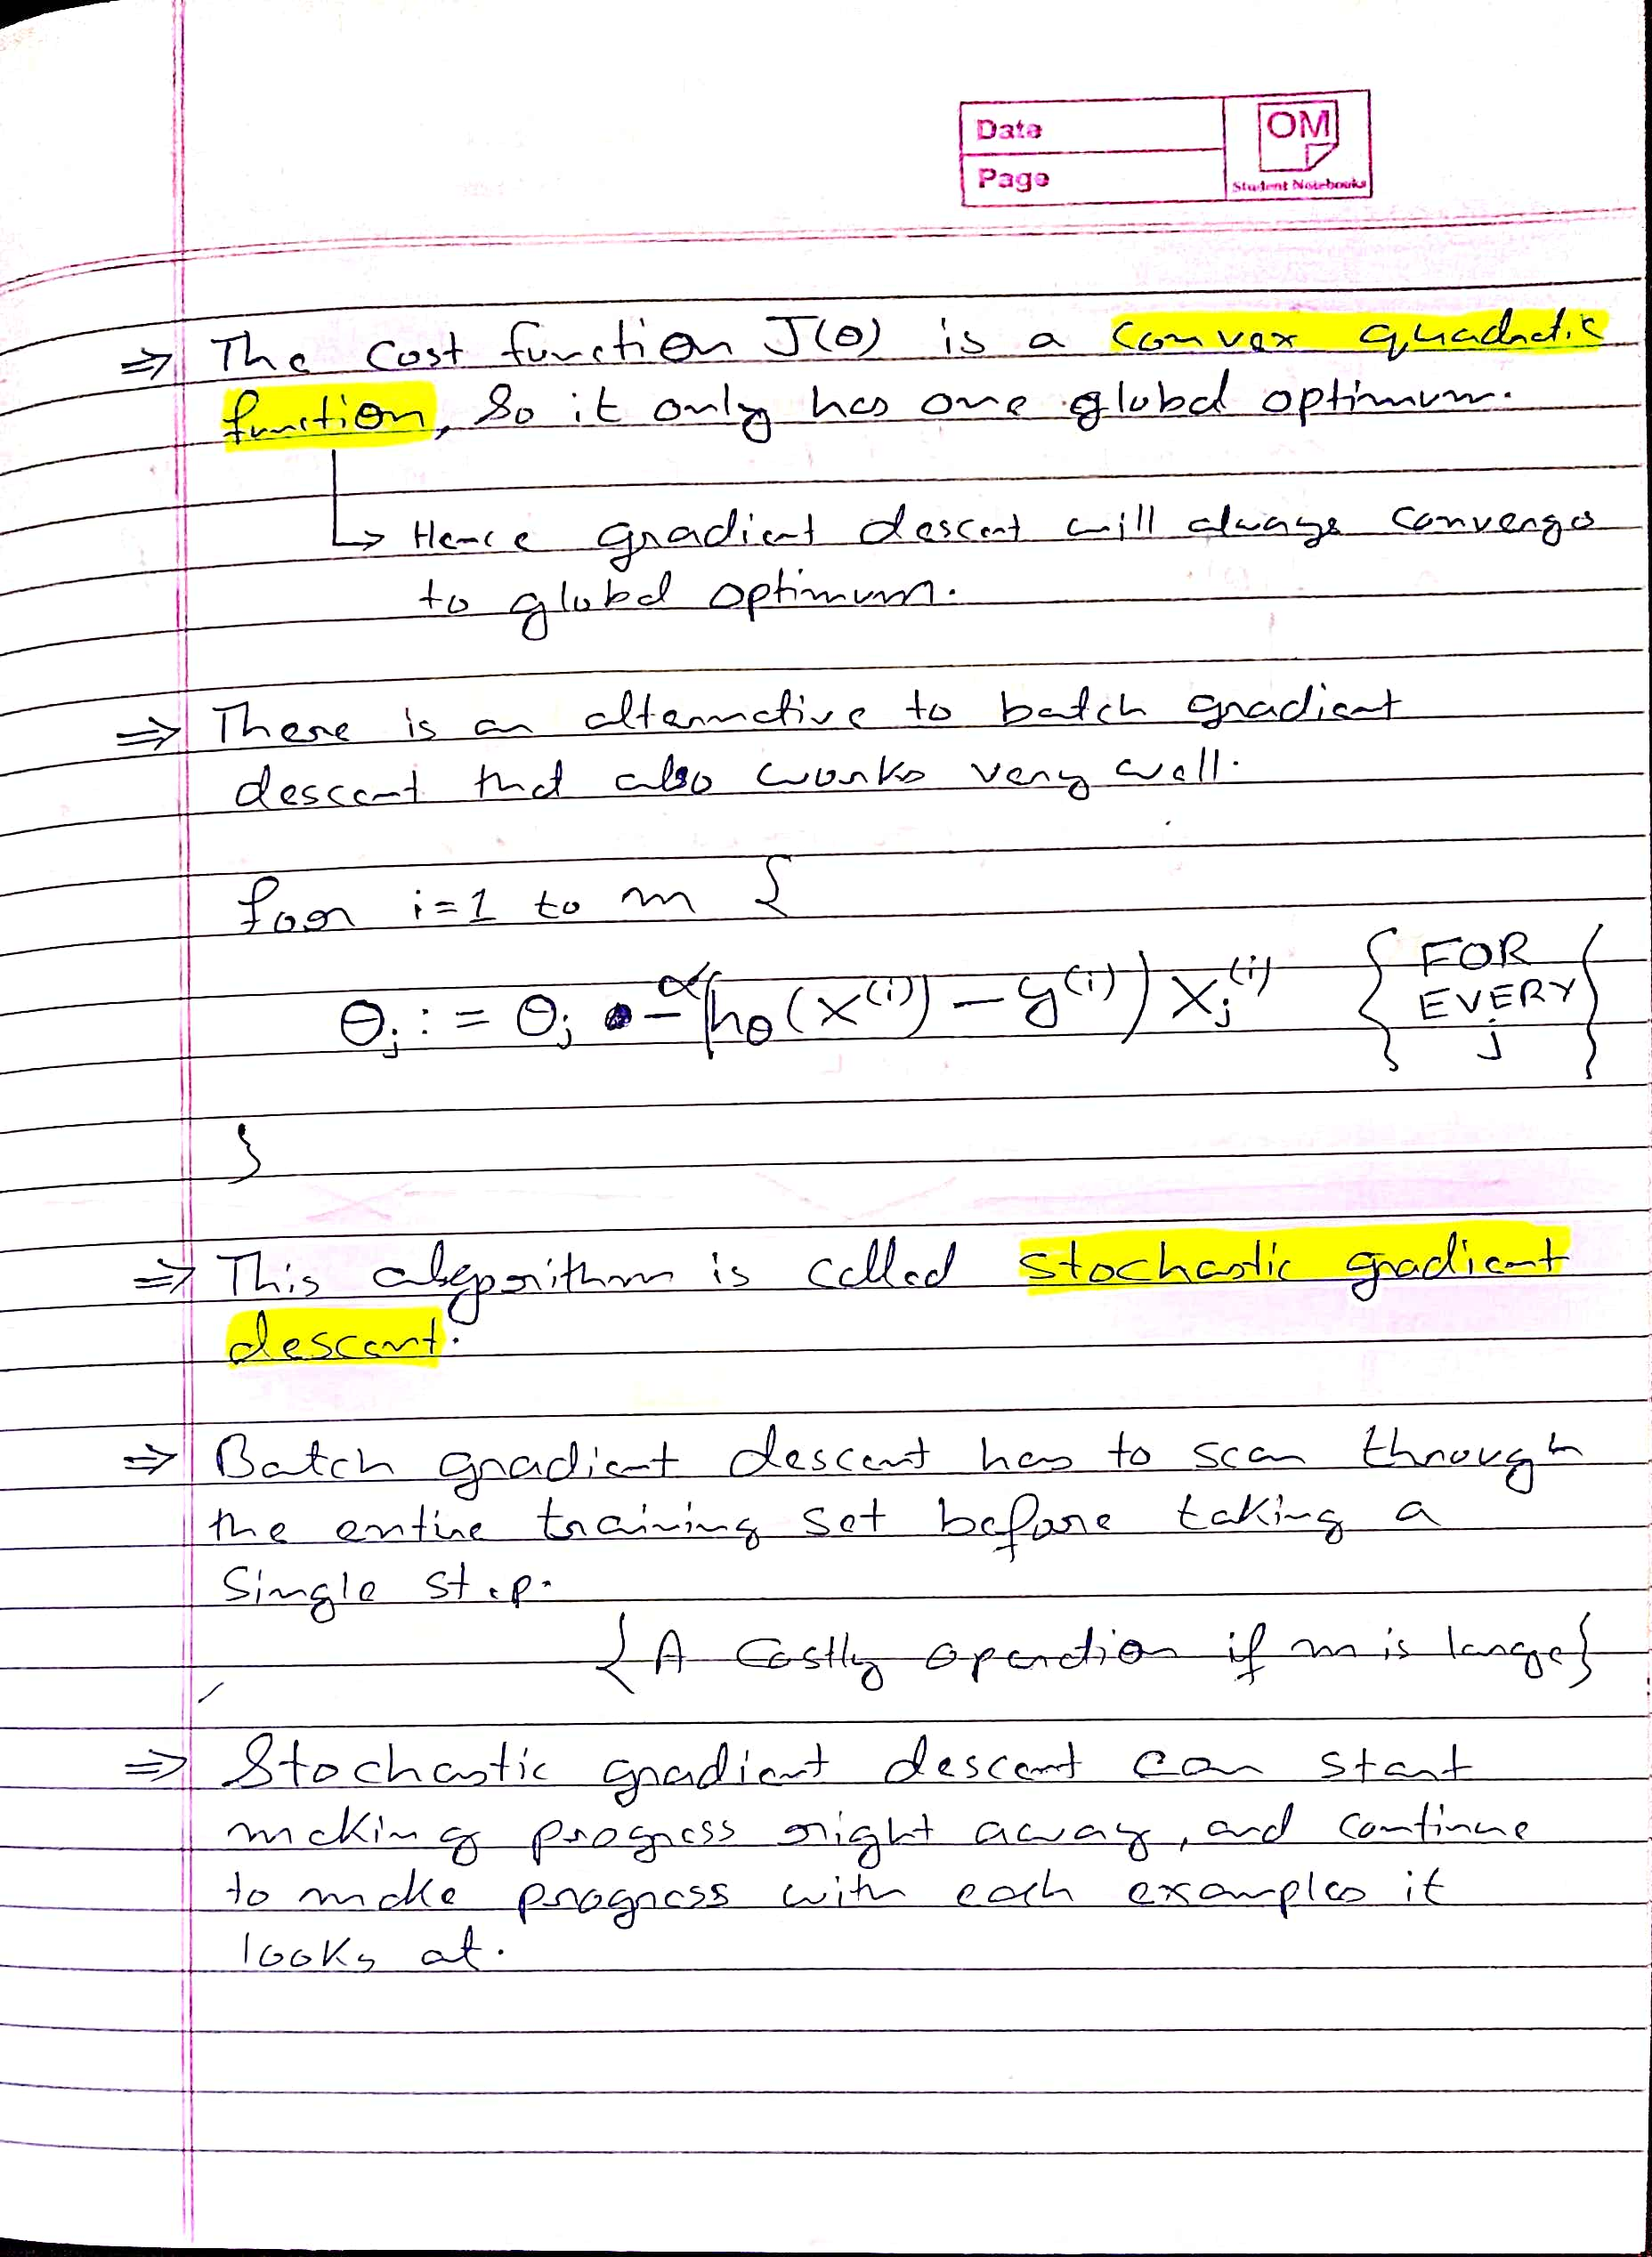 Date
Page
OM
Student Notebooks
⇒ The cost function J(θ) is a convex quadratic
function, So it only has one global optimum.
↳ Hence gradient descent will always converge
to global optimum.
⇒ There is an alternative to batch gradient
descent that also works very well.
for i=1 to m {
θj := θj - α(hθ(x^(i)) - y^(i)) xj^(i) { FOR EVERY j }
}
⇒ This algorithm is called stochastic gradient
descent.
⇒ Batch gradient descent has to scan through
the entire training set before taking a
single step.
{A costly operation if m is large}
⇒ Stochastic gradient descent can start
making progress right away, and continue
to make progress with each examples it
looks at.